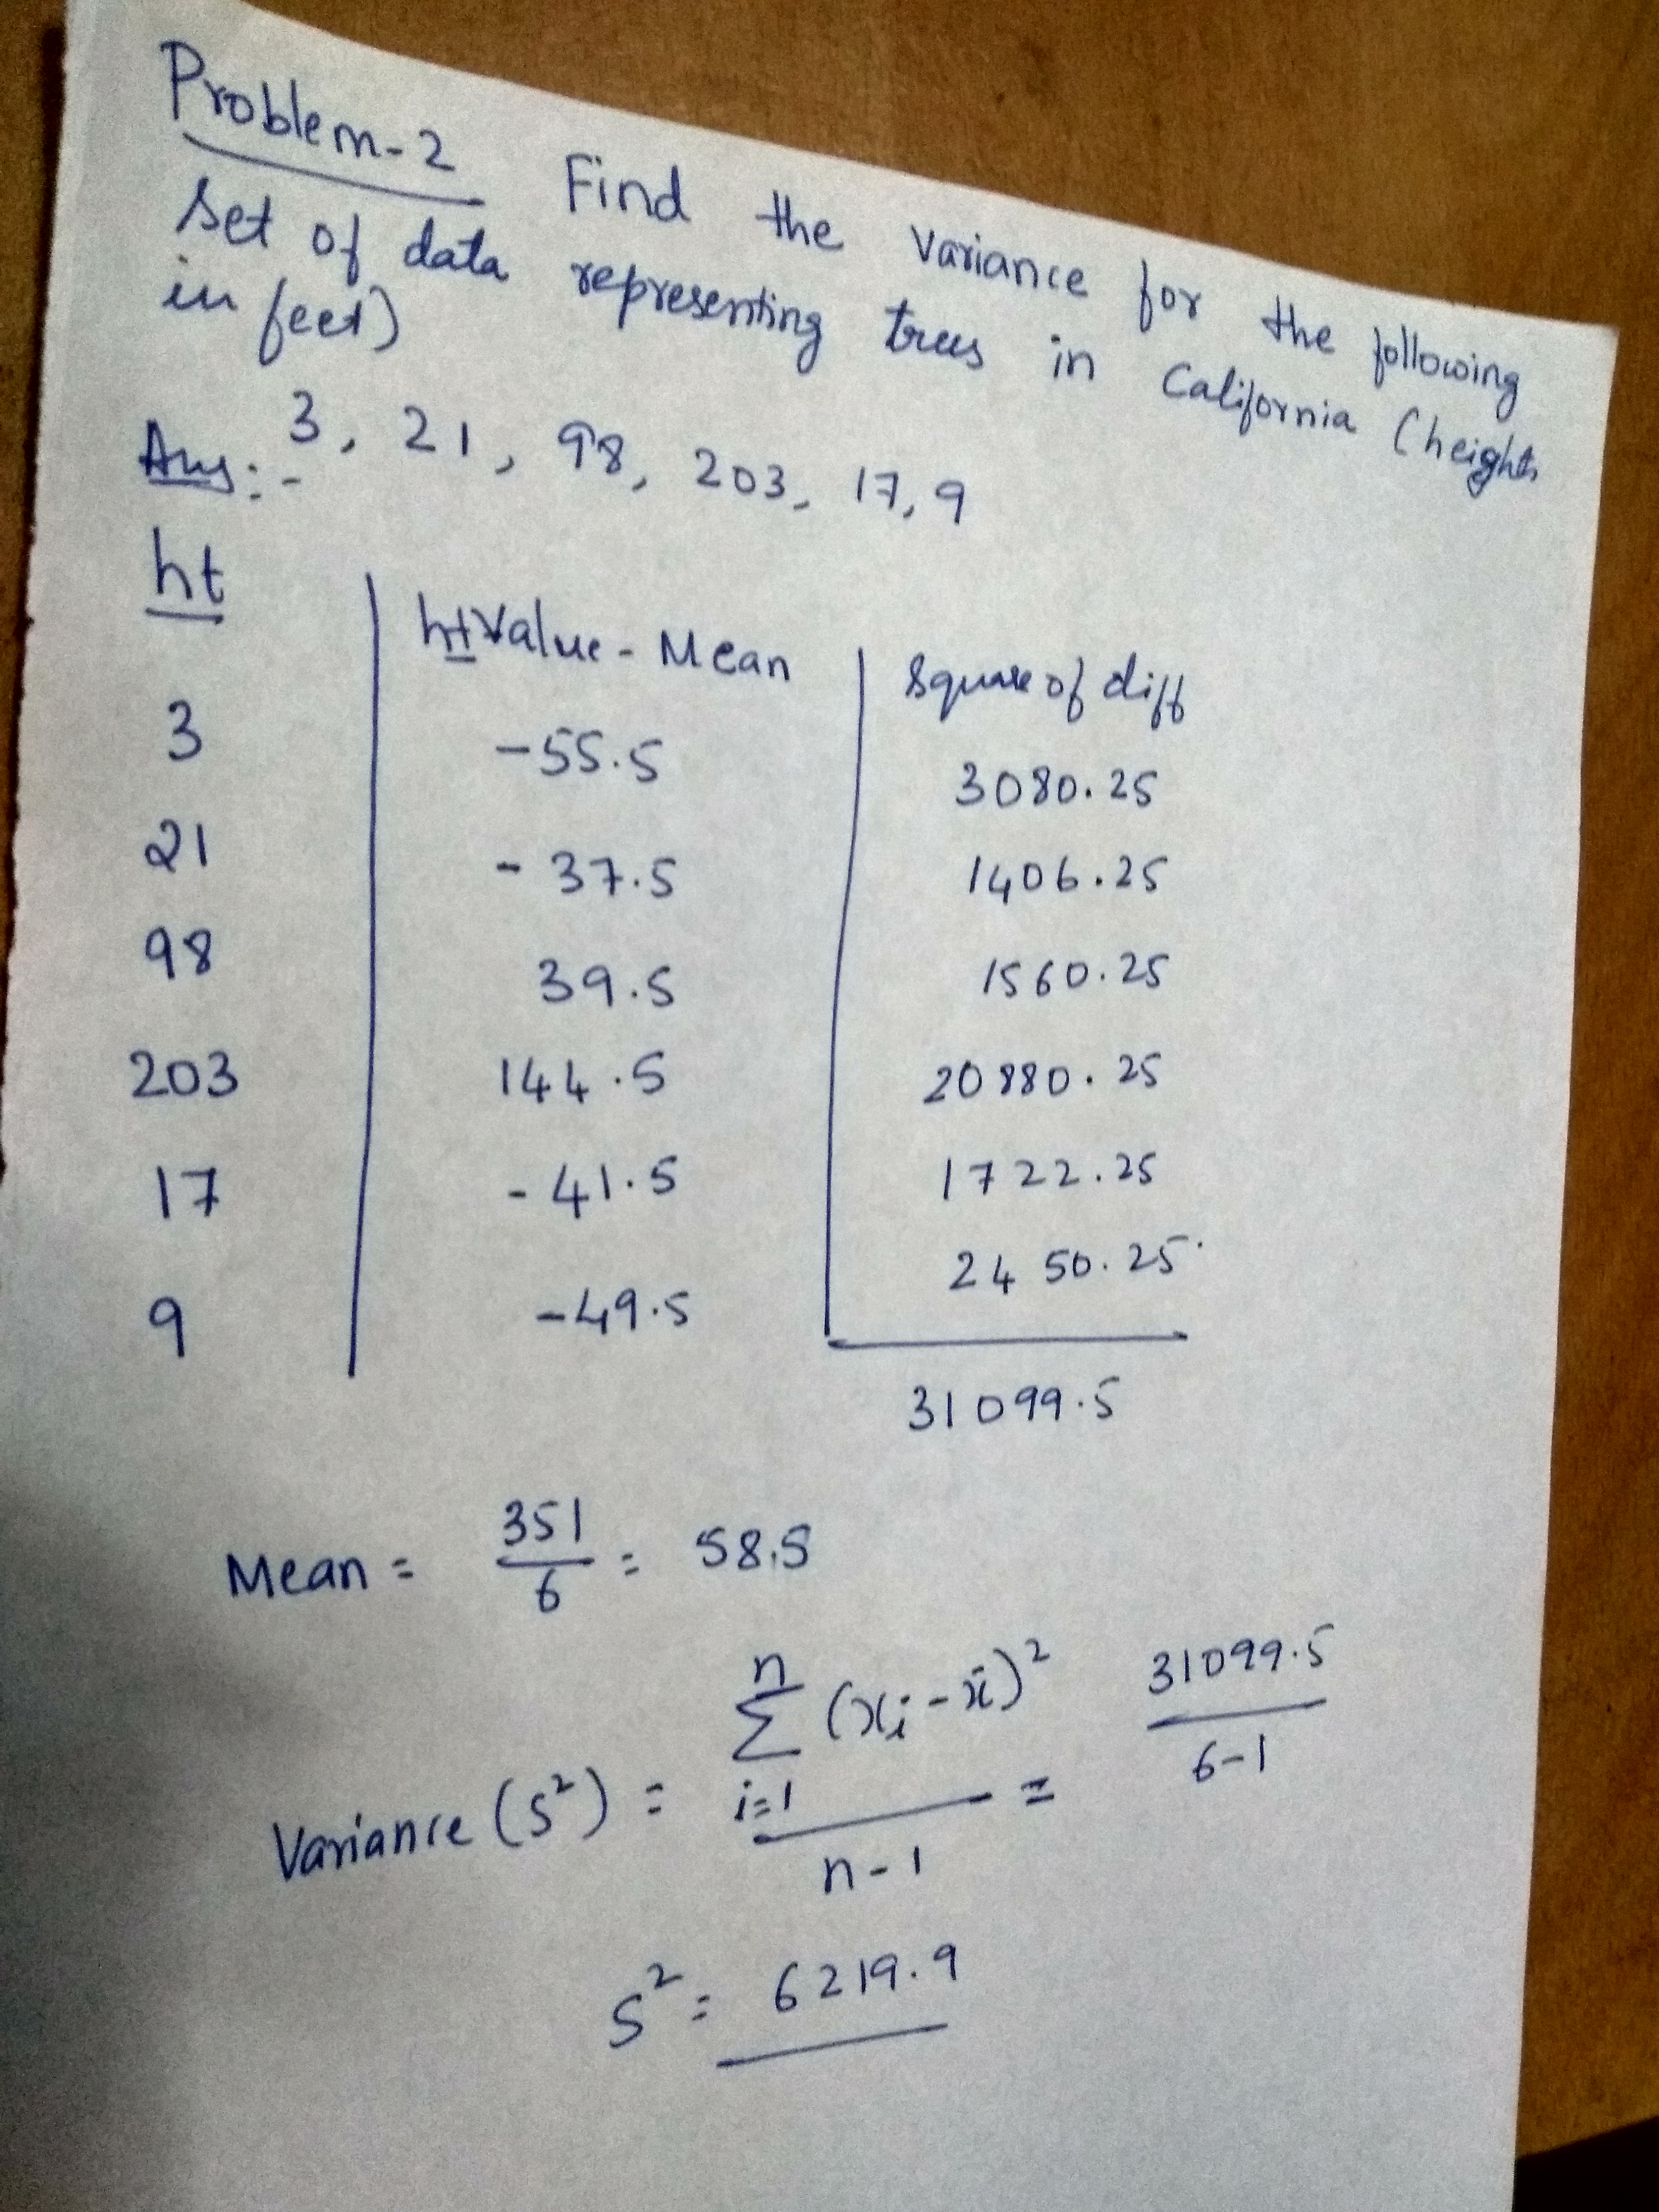 Problem-2 Find the variance for the following
set of data representing trees in California (heights
in feet)
Ans:- 3, 21, 98, 203, 17, 9
ht | ht Value - Mean | square of diff
3 | -55.5 | 3080.25
21 | -37.5 | 1406.25
98 | 39.5 | 1560.25
203 | 144.5 | 20880.25
17 | -41.5 | 1722.25
9 | -49.5 | 2450.25
31099.5
Mean = 351/6 = 58.5
Variance (s²) = n Σ i=1 (xi - x̄)² / n-1 = 31099.5 / 6-1
s² = 6219.9